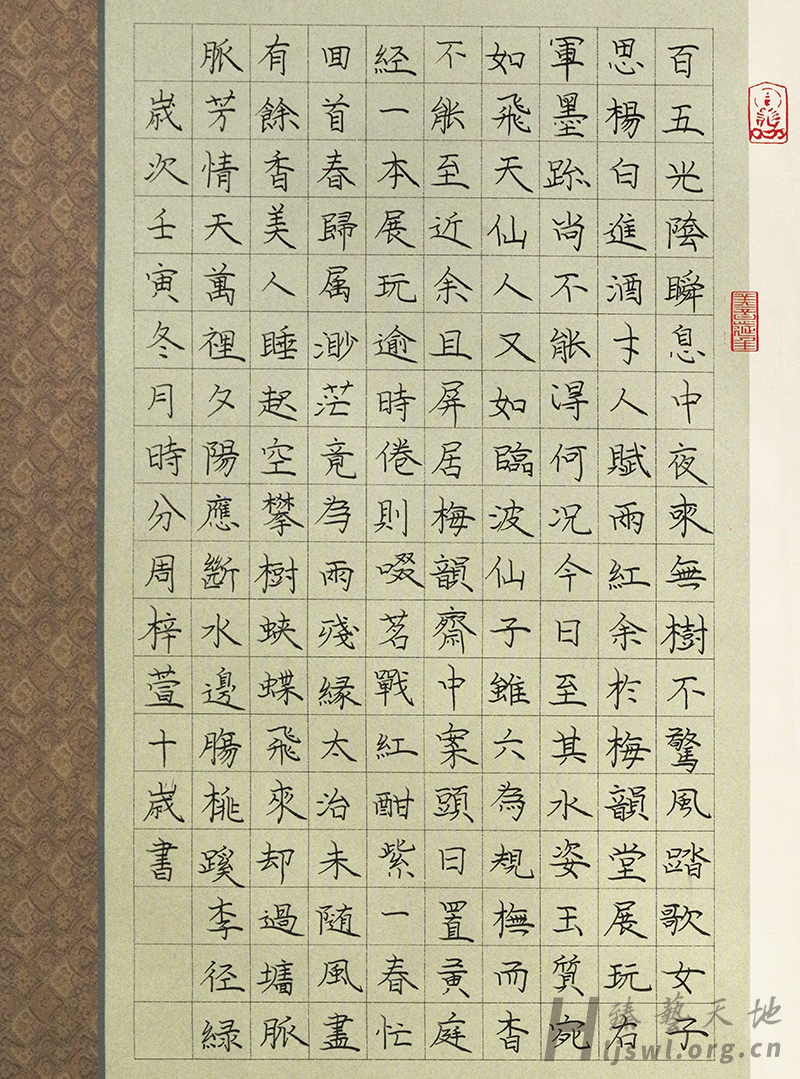 百五光陰瞬息中夜來無樹不驚風踏歌女子
思楊白進酒才人賦雨紅余於梅韻堂展玩右
軍墨跡尚不能得何况今日至其水姿玉質宛
如飛天仙人又如臨波仙子雖六為規橅而杳
不能至近余且屏居梅韻齋中案頭日置黃庭
經一本展玩逾時倦則啜茗戰紅酣紫一春忙
回首春歸属渺茫竟為雨殘緣太治未随風盡
有餘香美人睡起空攀樹蛺蝶飛來却過墻脈
脈芳情天萬裡夕陽應斷水邊腸桃蹊李径緑
歲次壬寅冬月時分周梓萱十歲書
臻藝天地
Hljswl.org.cn